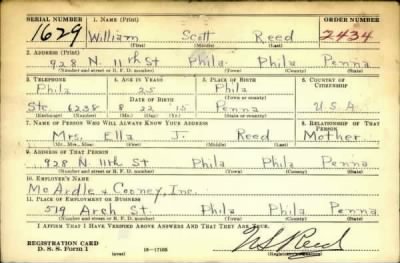 SERIAL NUMBER 1. NAME (Print) ORDER NUMBER
1629 William Scott Reed 2434
(First) (Middle) (Last)
2. ADDRESS (Print)
928 N. 11th St Phila. Phila Penna
(Number and street or R. F. D. number) (Town) (County) (State)
3. TELEPHONE 4. AGE IN YEARS 5. PLACE OF BIRTH 6. COUNTRY OF CITIZENSHIP
Phila 25 Phila
DATE OF BIRTH (Town or county)
Ste. 6238 8 22 15 Penna U.S.A.
(Exchange) (Number) (Mo.) (Day) (Yr.) (State or country)
7. NAME OF PERSON WHO WILL ALWAYS KNOW YOUR ADDRESS 8. RELATIONSHIP OF THAT PERSON
Mrs. Ella J. Reed Mother
(Mr., Mrs., Miss) (First) (Middle) (Last)
9. ADDRESS OF THAT PERSON
928 N. 11th St Phila Phila Penna
(Number and street or R. F. D. number) (Town) (County) (State)
10. EMPLOYER'S NAME
McArdle & Cooney, Inc.
11. PLACE OF EMPLOYMENT OR BUSINESS
519 Arch St. Phila Phila Penna.
(Number and street or R. F. D. number) (Town) (County) (State)
I AFFIRM THAT I HAVE VERIFIED ABOVE ANSWERS AND THAT THEY ARE TRUE.
REGISTRATION CARD
D. S. S. Form 1 (over) WS Reed